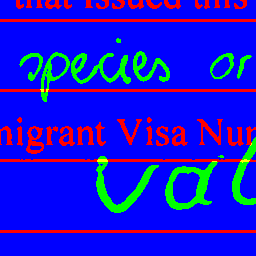 that issued this
species or
migrant Visa Num
val